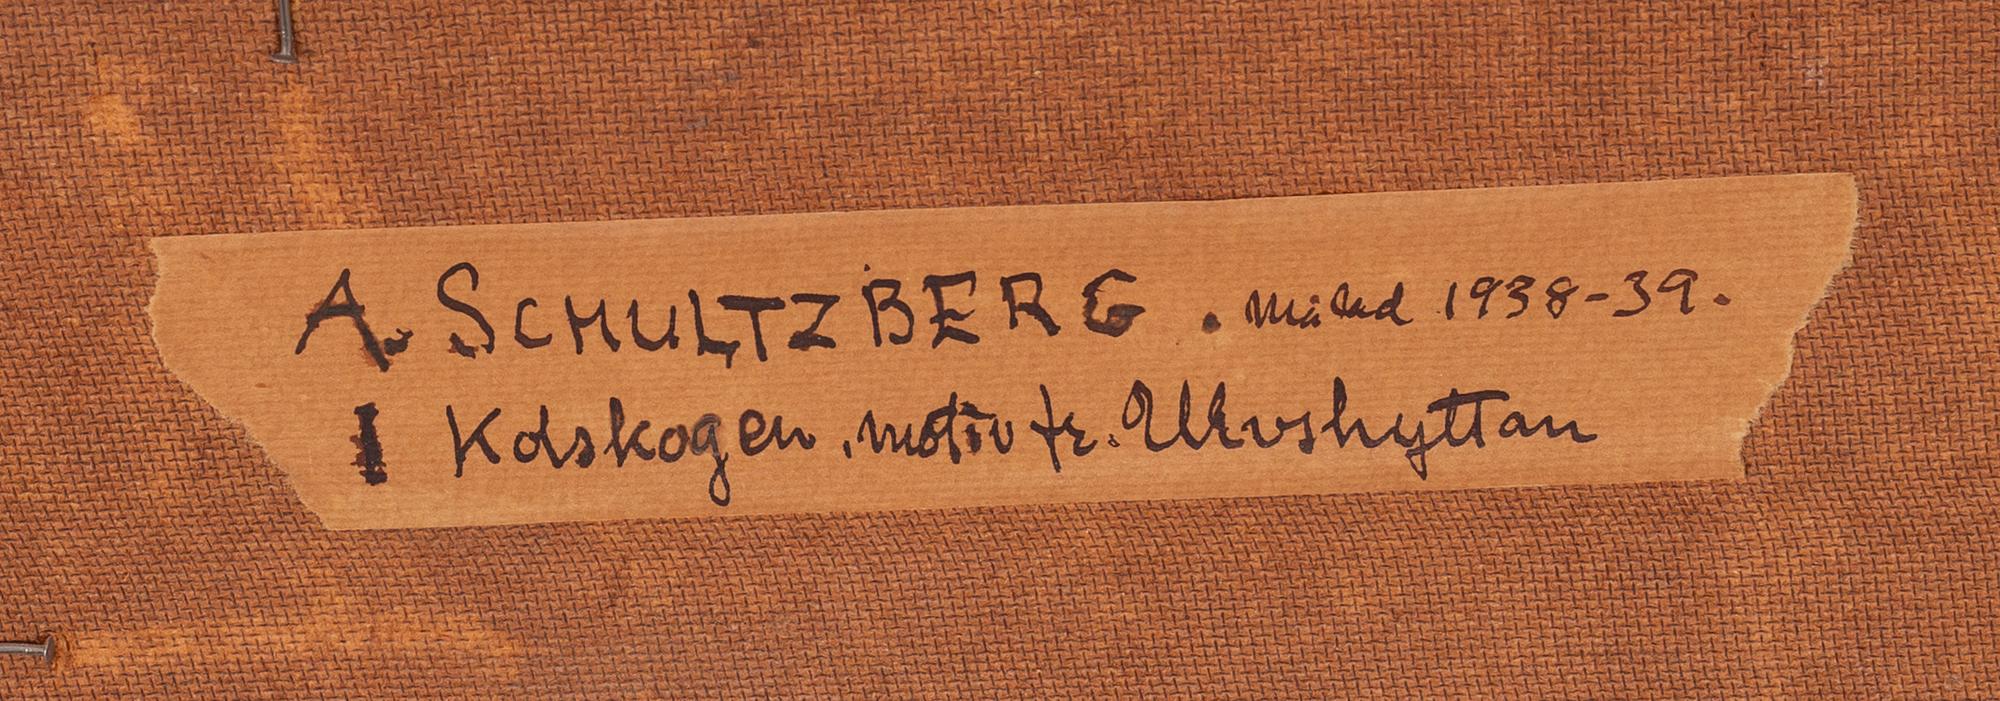 A. SCHULTZBERG. Målad 1938-39.
I Kolskogen, motiv fr. Ulvshyttan